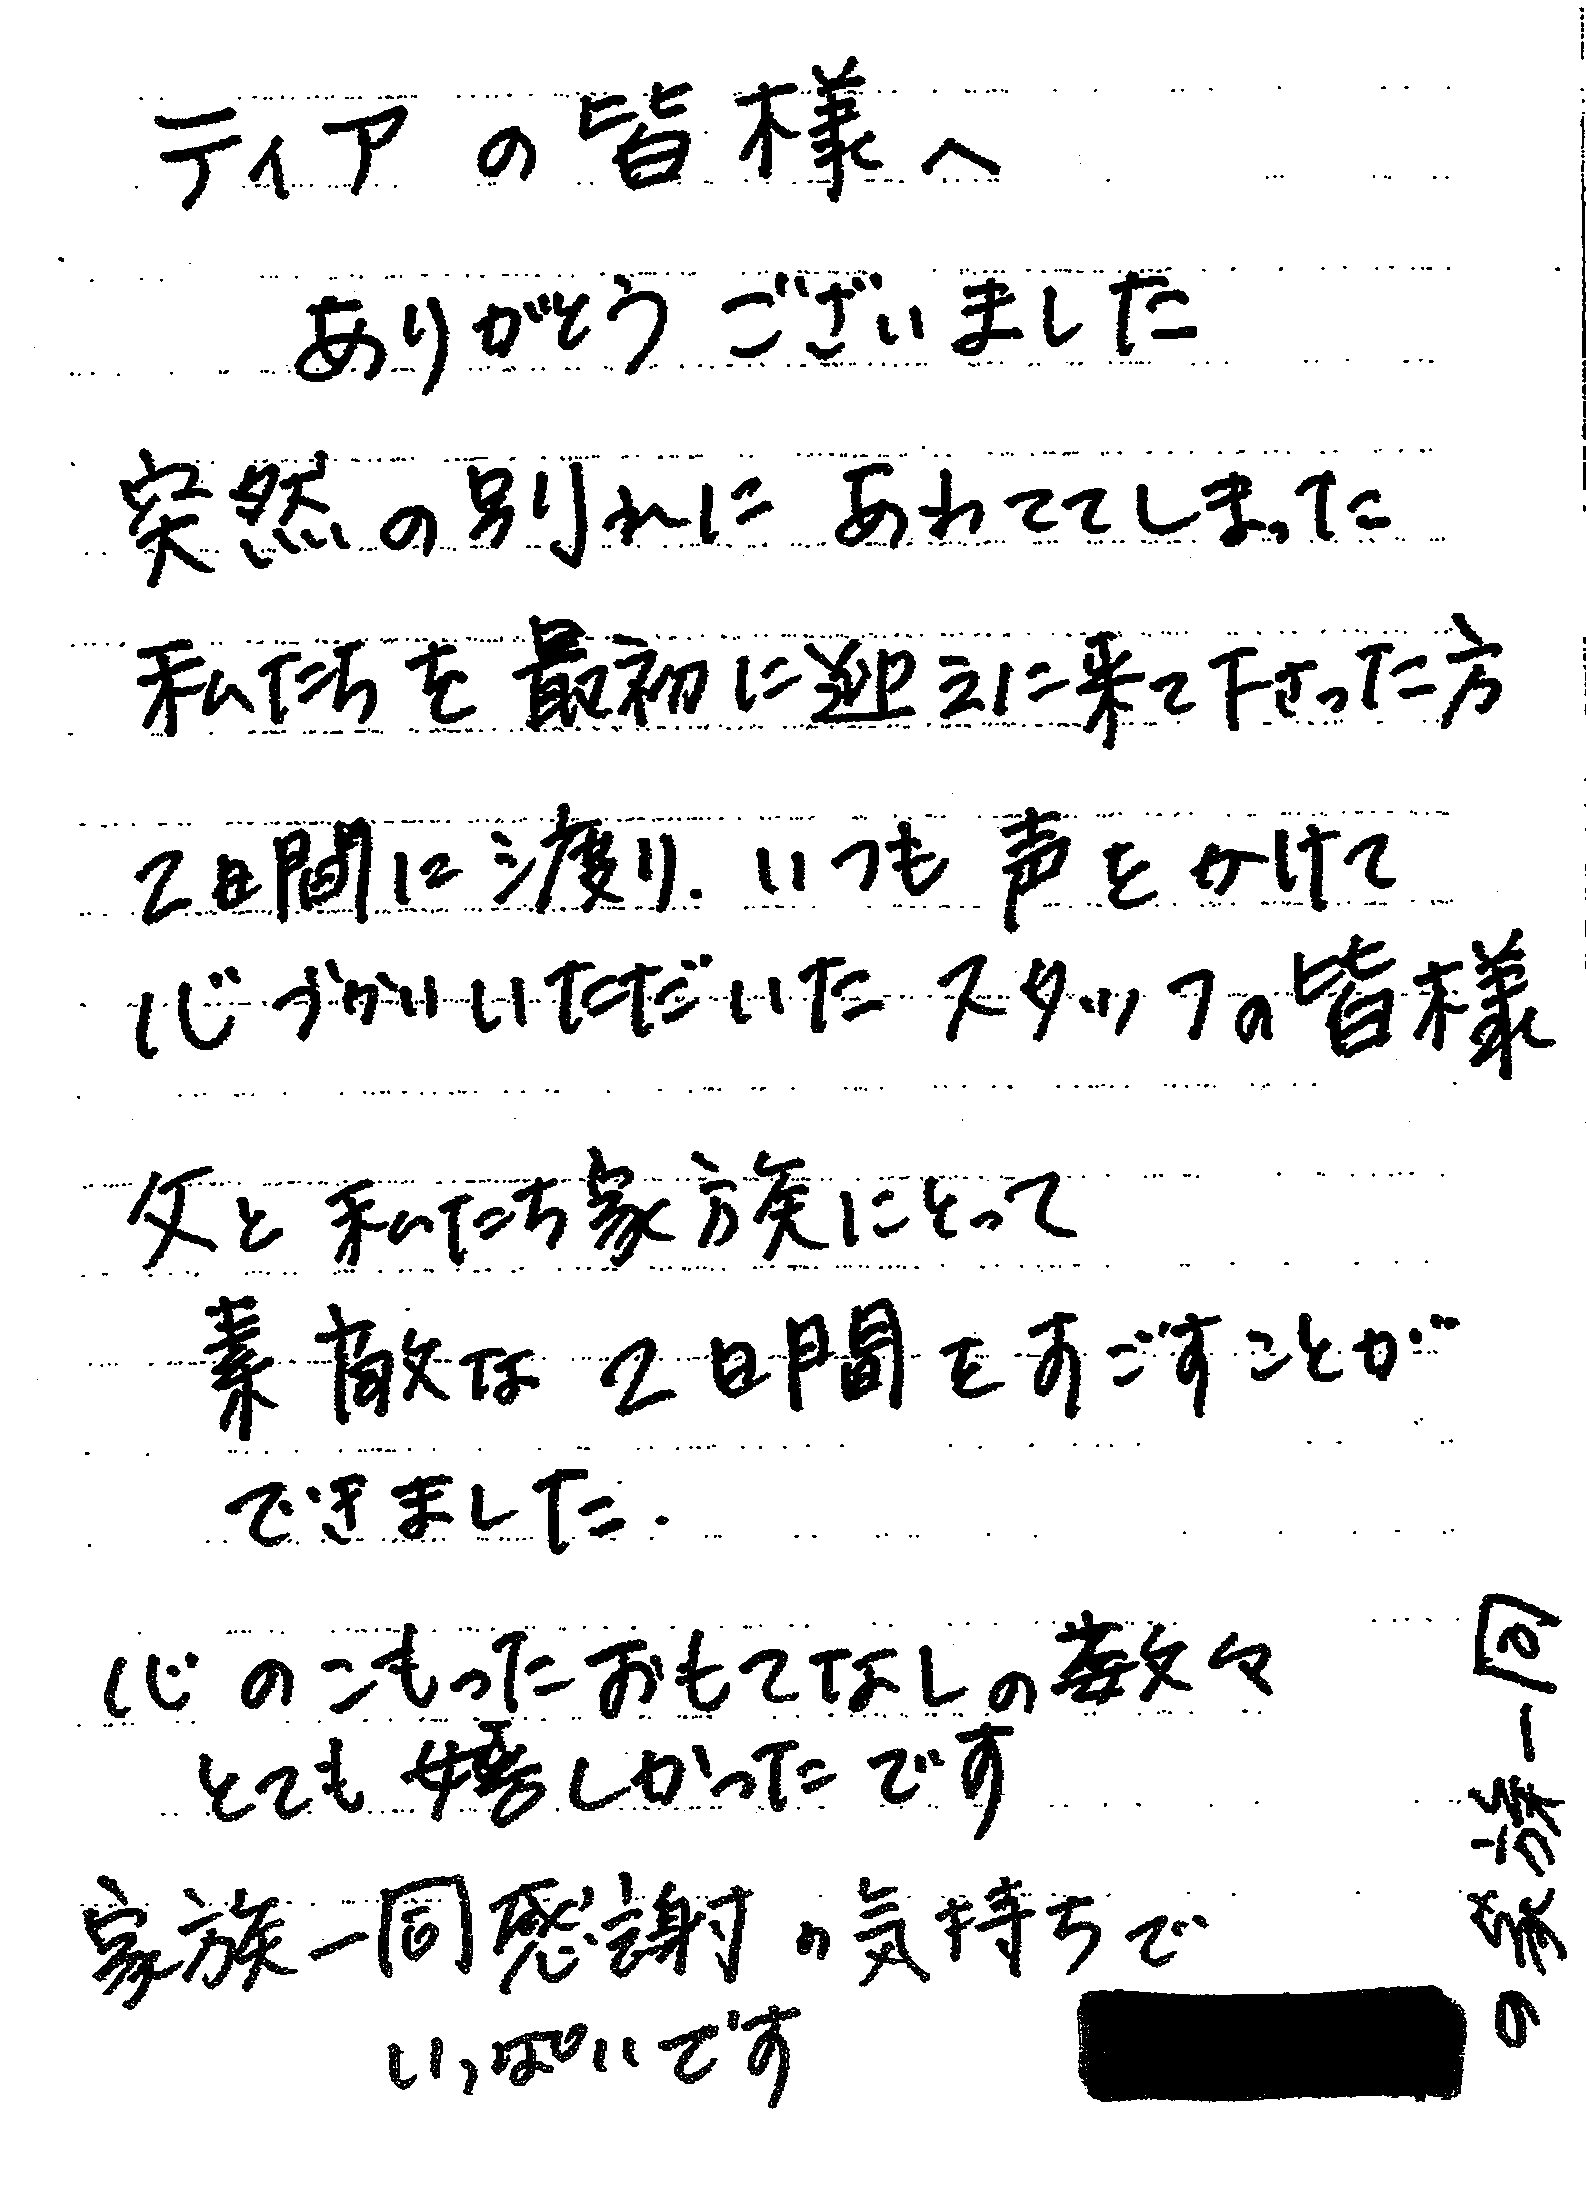 ティアの皆様へ
ありがとうございました
突然の別れに あわててしまった
私たちを最初に迎えに来て下さった方
2日間に渡り. いつも声をかけて
心づかいいただいた スタッフの皆様
父と私たち家族にとって
素敵な2日間をすごすことが
できました.
心のこもったおもてなしの数々
とても嬉しかったです
家族一同感謝の気持ちで
いっぱいです
の家族一同